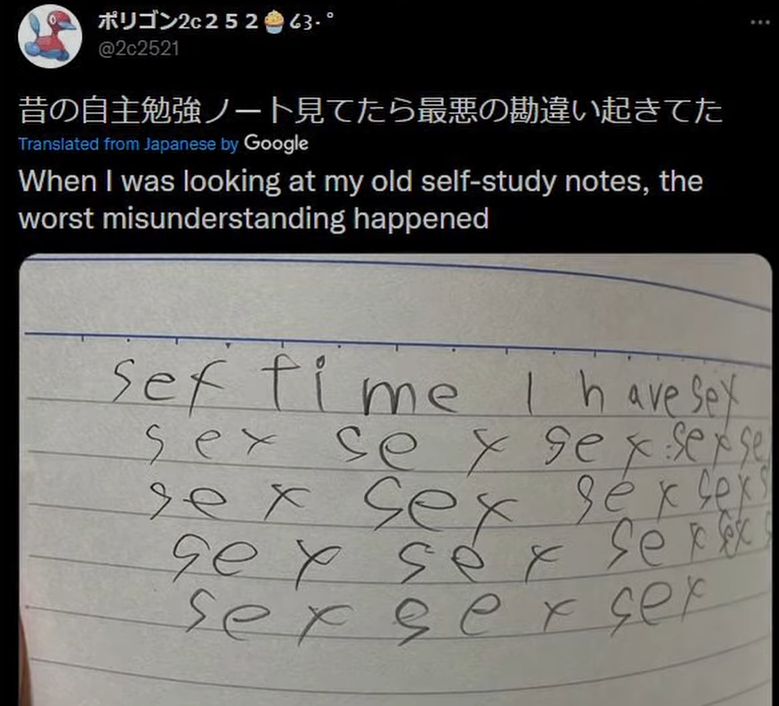 ポリゴン2c252🧁໒꒱· ゚
@2c2521
昔の自主勉強ノート見てたら最悪の勘違い起きてた
Translated from Japanese by Google
When I was looking at my old self-study notes, the
worst misunderstanding happened
sex time I have sex
sex sex sex sex se
sex sex sex sex s
sex sex sex sex s
sex sex sex